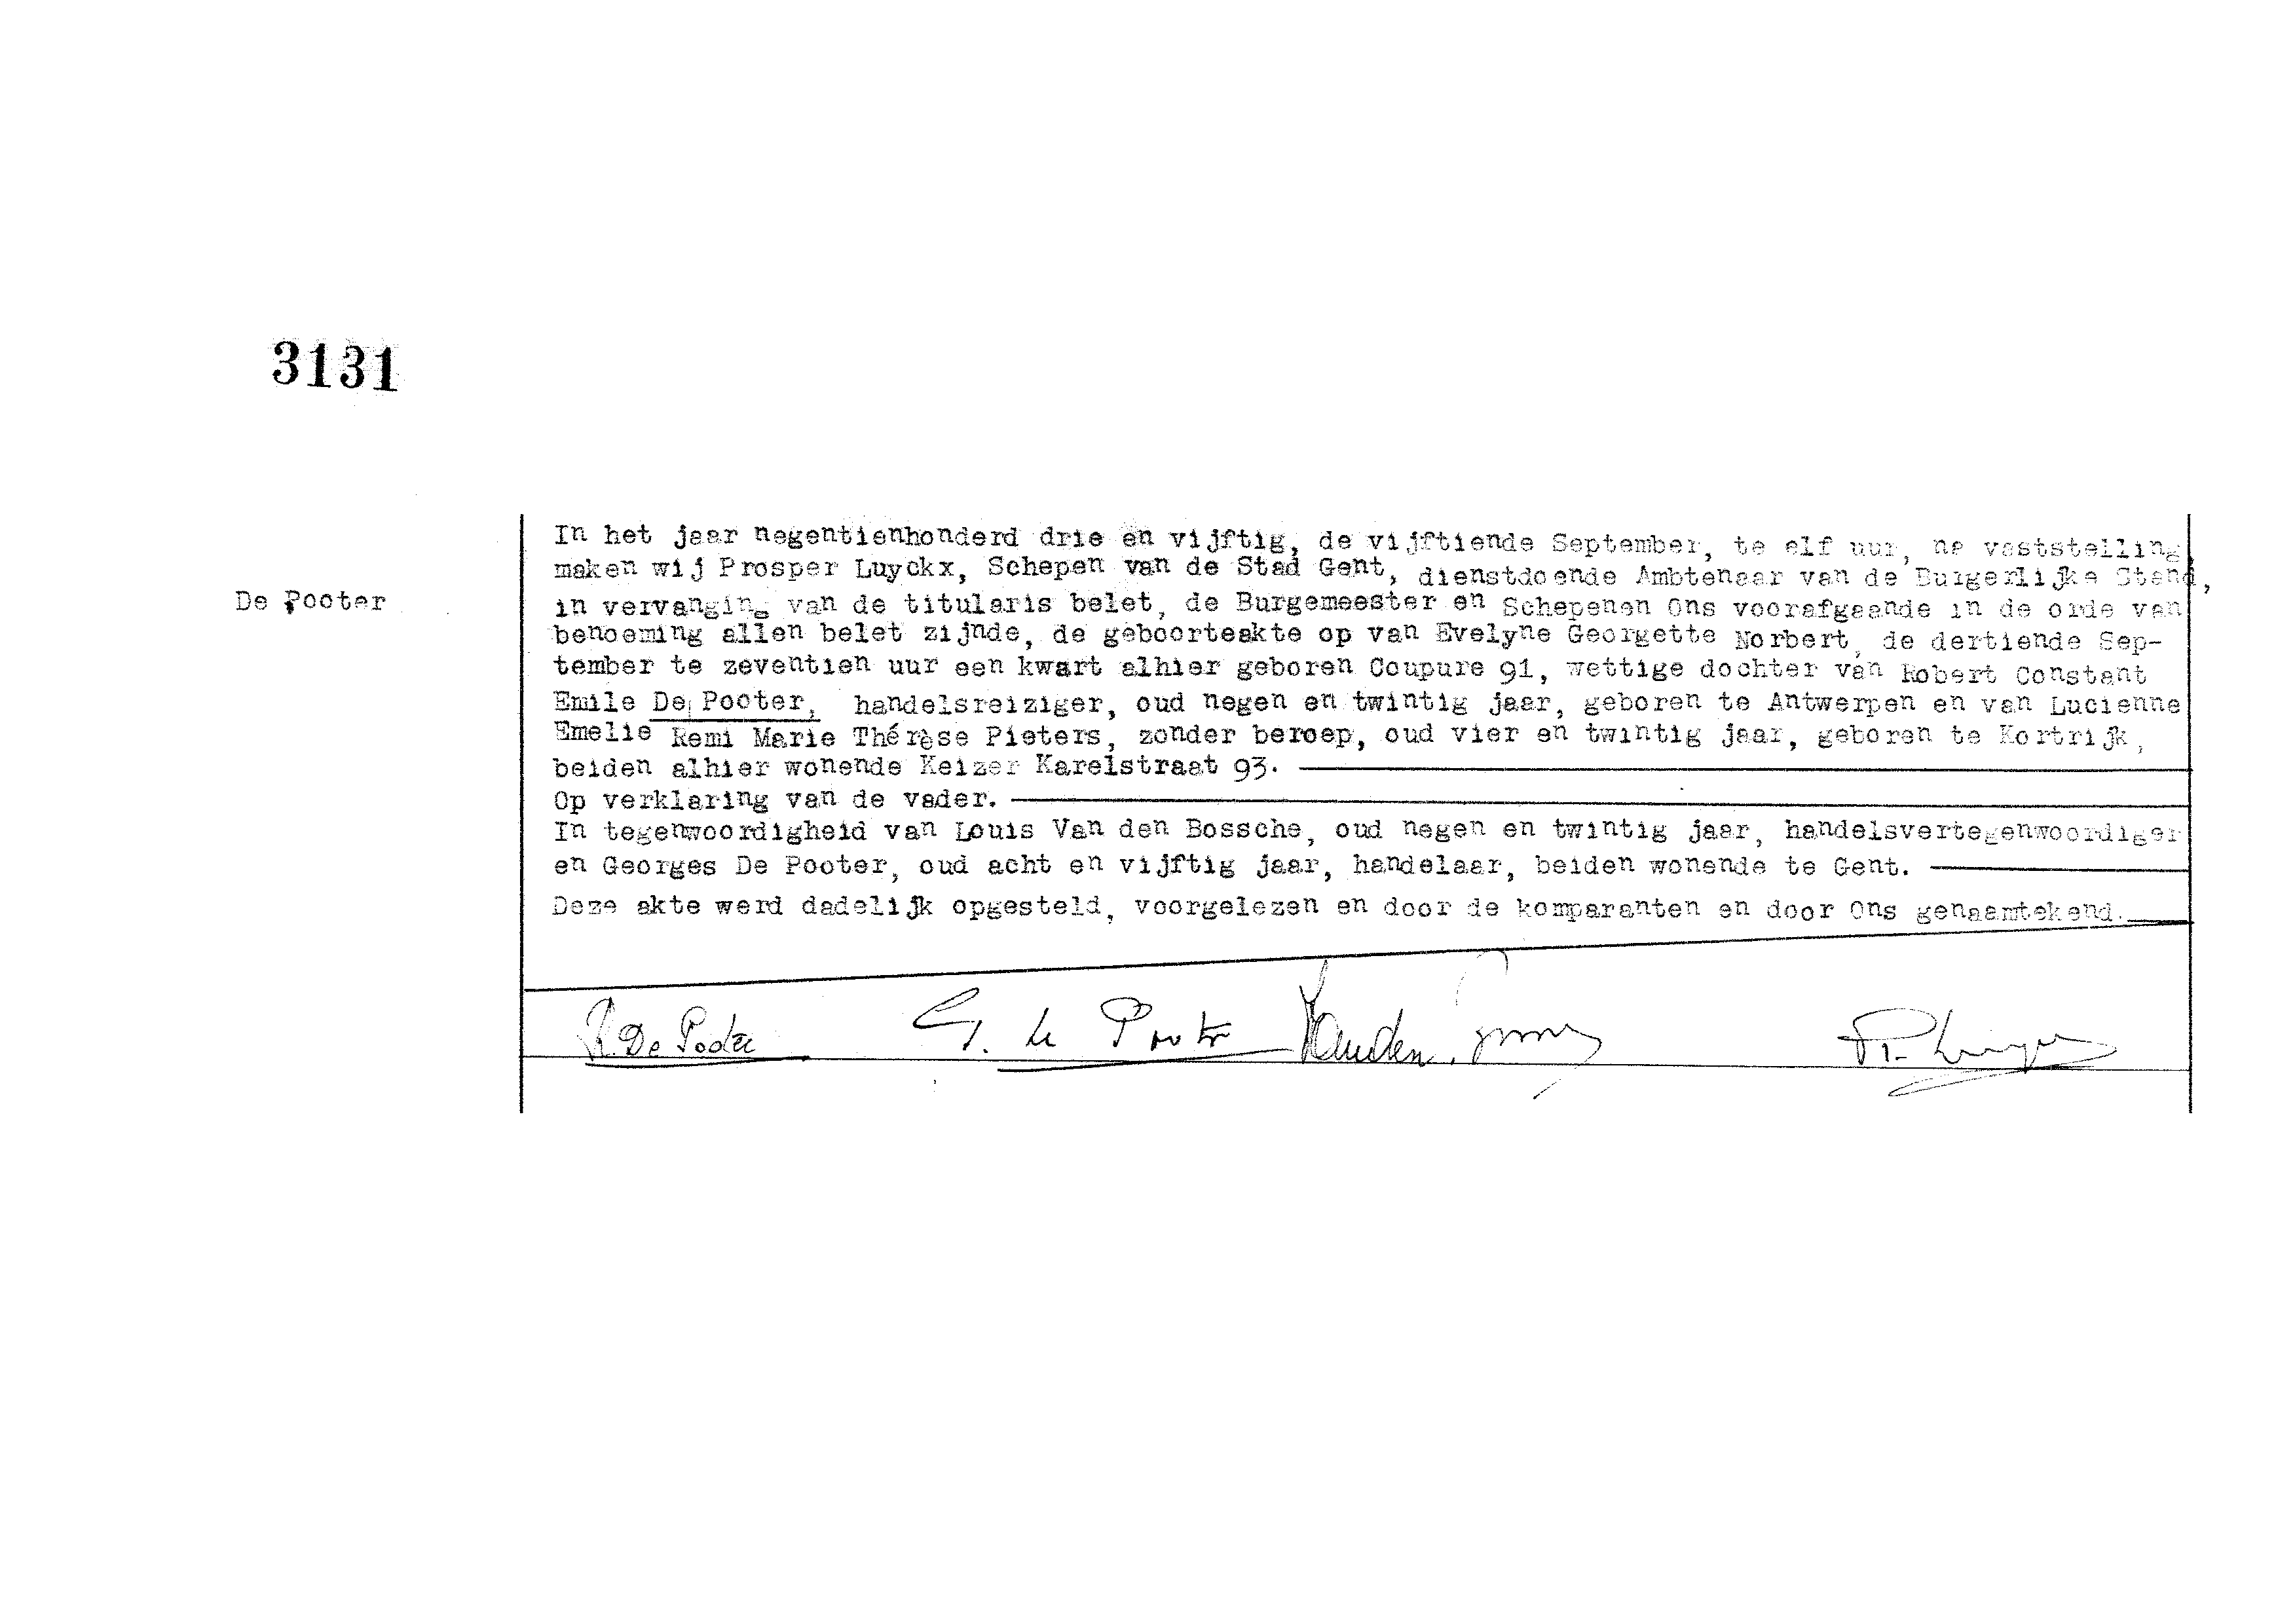 3131
De Pooter
In het jaar negentienhonderd drie en vijftig, de vijftiende September, te elf uur, na vaststelling
maken wij Prosper Luyckx, Schepen van de Stad Gent, dienstdoende Ambtenaar van de Burgerlijke Stand,
in vervanging van de titularis belet, de Burgemeester en Schepenen Ons voorafgaande in de orde van
benoeming allen belet zijnde, de geboorteakte op van Evelyne Georgette Norbert, de dertiende Sep-
tember te zeventien uur een kwart alhier geboren Coupure 91, wettige dochter van Robert Constant
Emile De Pooter, handelsreiziger, oud negen en twintig jaar, geboren te Antwerpen en van Lucienne
Emelie Remi Marie Thérèse Pieters, zonder beroep, oud vier en twintig jaar, geboren te Kortrijk,
beiden alhier wonende Keizer Karelstraat 93.
Op verklaring van de vader.
In tegenwoordigheid van Louis Van den Bossche, oud negen en twintig jaar, handelsvertegenwoordiger
en Georges De Pooter, oud acht en vijftig jaar, handelaar, beiden wonende te Gent.
Deze akte werd dadelijk opgesteld, voorgelezen en door de komparanten en door Ons genaamtekend.
R. De Pooter G. de Pooter Vanden